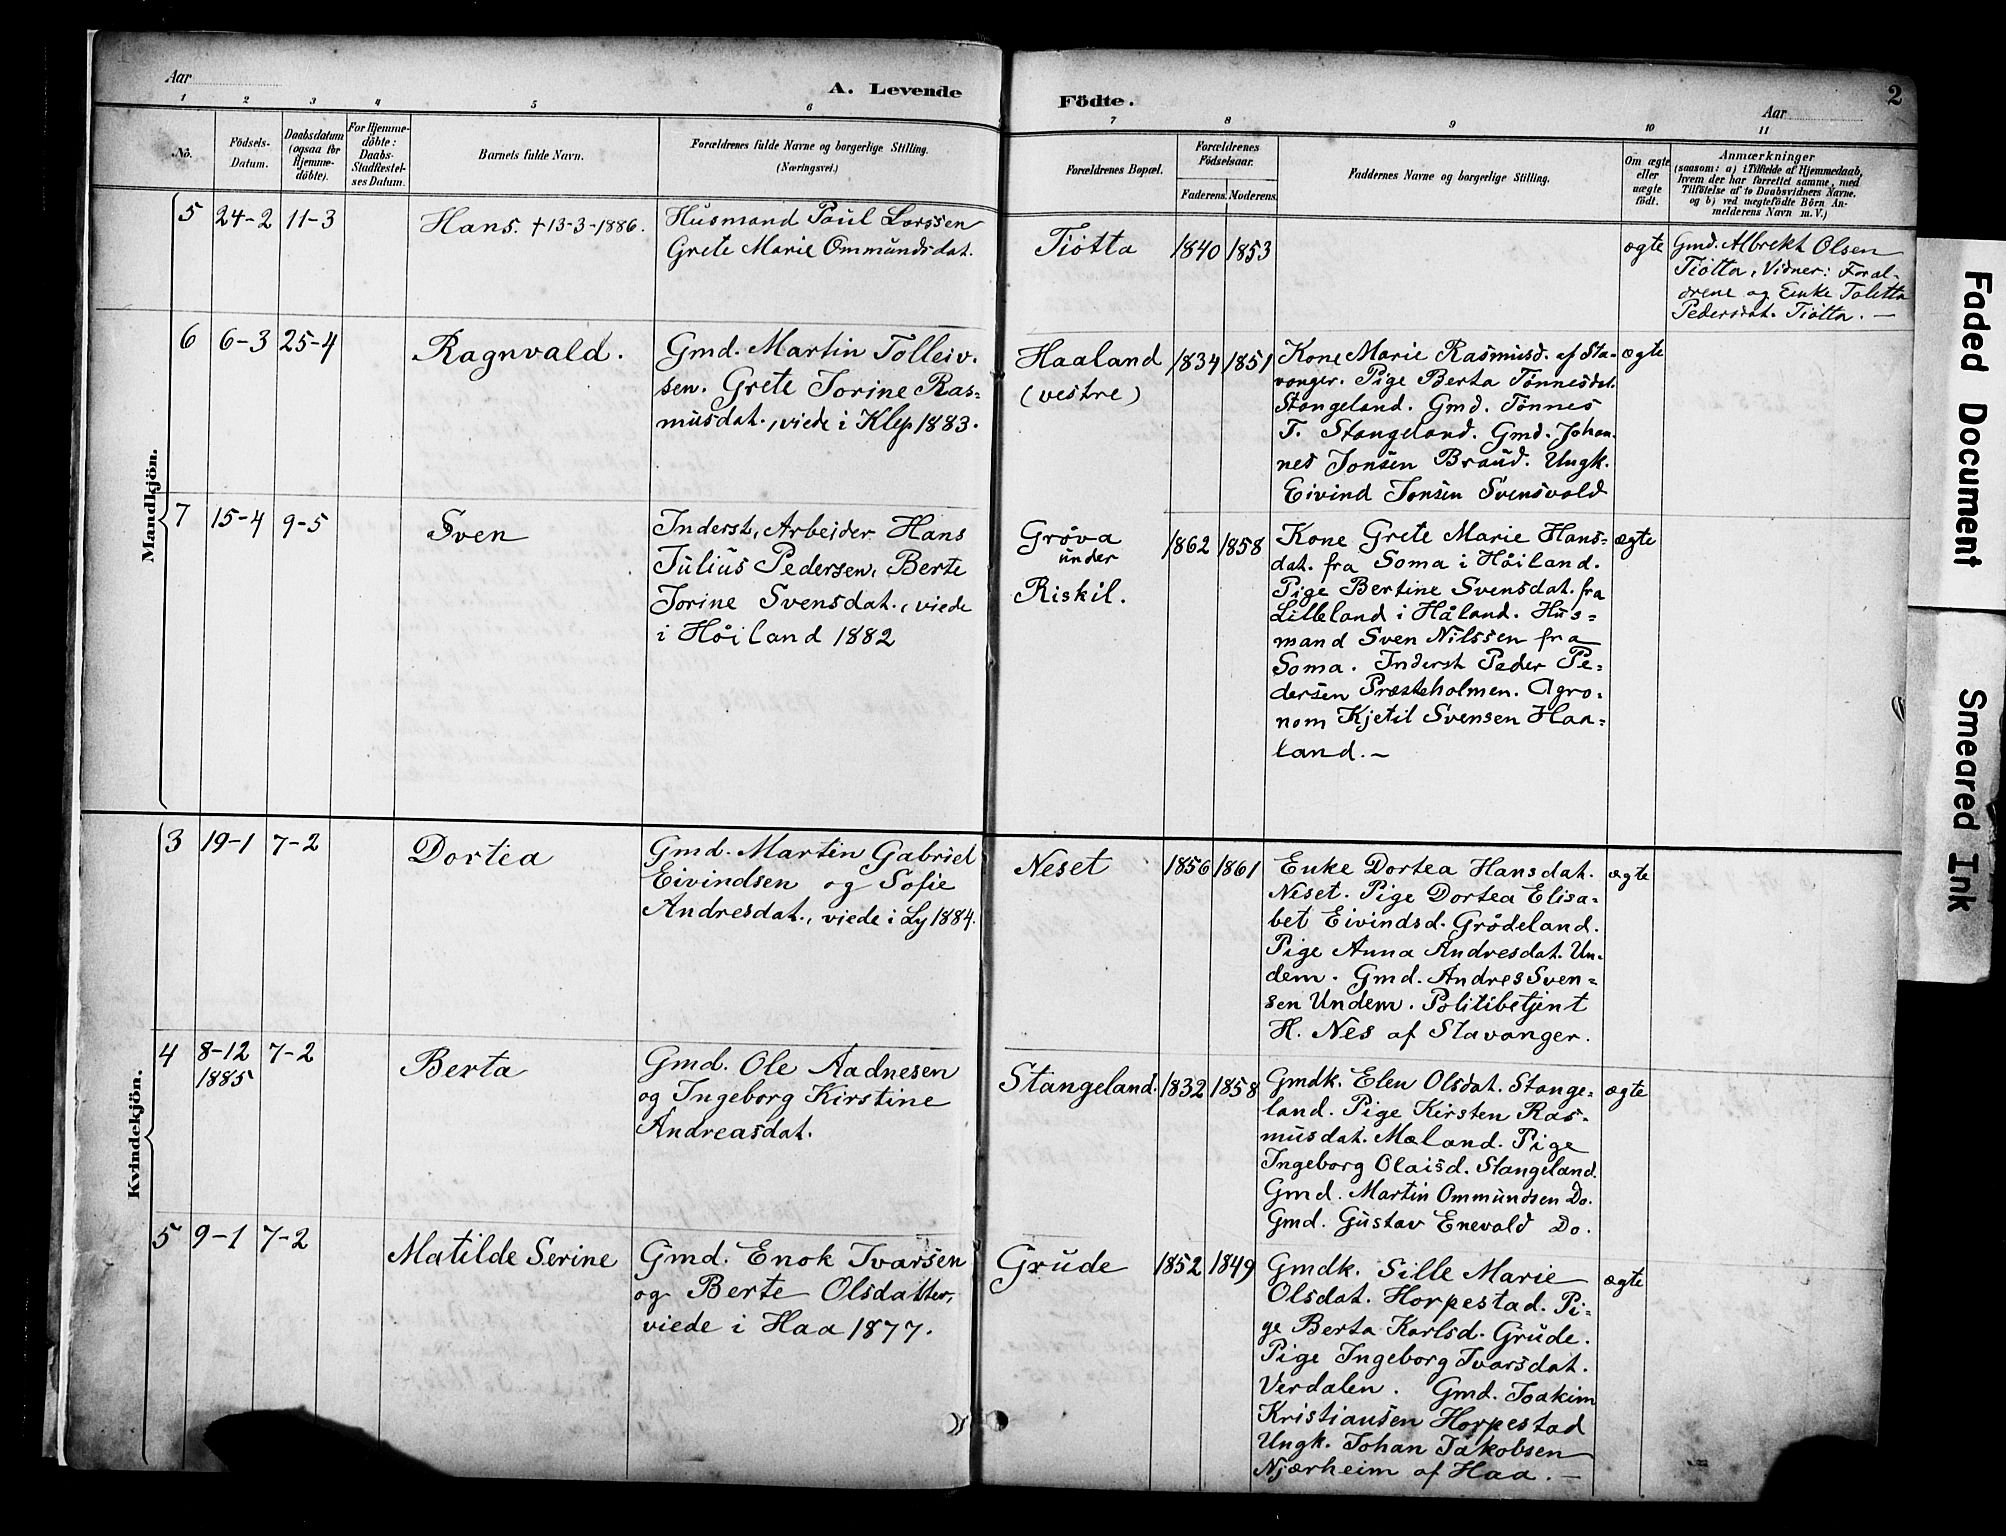 Aar
A. Levende
Födte.
Aar
2
1
2
3
4
5
6
7
8
9
10
11
No.
Födsels-
Datum.
Daabsdatum
(ogsaa for
Hjemme-
döbte).
For Hjemme-
döbte:
Daabs-
Stadfæstel-
ses Datum.
Barnets fulde Navn.
Forældrenes fulde Navne og borgerlige Stilling.
(Næringsvei.)
Forældrenes Bopæl.
Forældrenes
Födselsaar.
Faderens. Moderens.
Faddernes Navne og borgerlige Stilling.
Om ægte
eller
uægte
födt.
Anmærkninger
(saasom: a) i Tilfælde af Hjemmedaab,
hvem der har forrettet samme, med
Tilföielse af to Daabsvidners Navne.
og b) ved uægtefödte Börn An-
melderens Navn m. V.)
Mandkjön.
5
24-2
11-3
Hans. †13-3-1886.
Husmand Paul Larssen
Grete Marie Ommundsdat.
Tiøtta
1840
1853
ægte
Gmd. Albrekt Olsen
Tiøtta, Vidner: Foræl-
drene og Enke Taletta
Pedersdat. Tiøtta. —
6
6-3
25-4
Ragnvald.
Gmd. Martin Tolleiv.
sen. Grete Torine Ras=
musdat., viede i Klep 1883.
Haaland
(vestre)
1834
1851
Kone Marie Rasmusd. af Sta-
vanger. Pige Berta Tønnesdat.
Stangeland. Gmd. Tønnes
T. Stangeland. Gmd. Johan-
nes Jonsen Braud. Ungk.
Eivind Jonsen Svensvold
ægte
7
15-4
9-5
Sven
Inderst, Arbeider Hans
Julius Pedersen, Berte
Torine Svensdat., viede
i Høiland 1882
Grøva
under
Riskil.
1862
1858
Kone Grete Marie Hans=
dat. fra Soma i Høiland.
Pige Bertine Svensdat. fra
Lilleland i Håland. Hus=
mand Sven Nilssen fra
Soma. Inderst Peder Pe-
dersen Præsteholmen. Agro-
nom Kjetil Svensen Haa=
land. —
ægte
Kvindekjön.
3
19-1
7-2
Dortea
Gmd. Martin Gabriel
Eivindsen og Sofie
Andresdat., viede i Ly 1884.
Neset
1856
1861
Enke Dortea Hansdat.
Neset. Pige Dortea Elisa-
bet Eivindsd. Grødeland.
Pige Anna Andresdat. Un-
dem. Gmd. Andres Sven=
sen Undem. Politibetjent
H. Nes af Stavanger.
ægte
4
8-12
1885
7-2
Berta
Gmd. Ole Aadnesen
og Ingeborg Kirstine
Andreasdat.
Stangeland.
1832
1858
Gmdk. Elen Olsdat. Stange=
land. Pige Kirsten Ras-
musdat. Mæland. Pige
Ingeborg Olaisd. Stangeland.
Gmd. Martin Ommundsen Do.
Gmd. Gustav Enevald Do.
ægte
5
9-1
7-2
Matilde Serine
Gmd. Enok Ivarsen
og Berte Olsdatter,
viede i Haa 1877.
Grude
1852
1849
Gmdk. Sille Marie
Olsdat. Horpestad. Pi=
ge Berta Karlsd. Grude.
Pige Ingeborg Ivarsdat.
Verdalen. Gmd. Joakim
Kristiansen Horpestad
Ungk. Johan Jakobsen
Njærheim af Haa. —
ægte
Faded Document
Smeared Ink